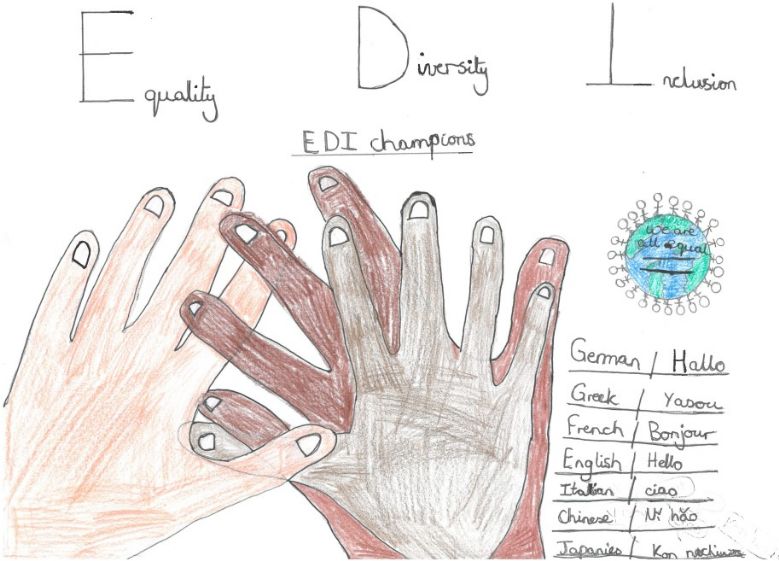 Equality Diversity Inclusion
EDI champions
We are
all equal
German / Hallo
Greek / Yasou
French / Bonjour
English / Hello
Italian / ciao
Chinese / Nǐ hǎo
Japanies / Kon